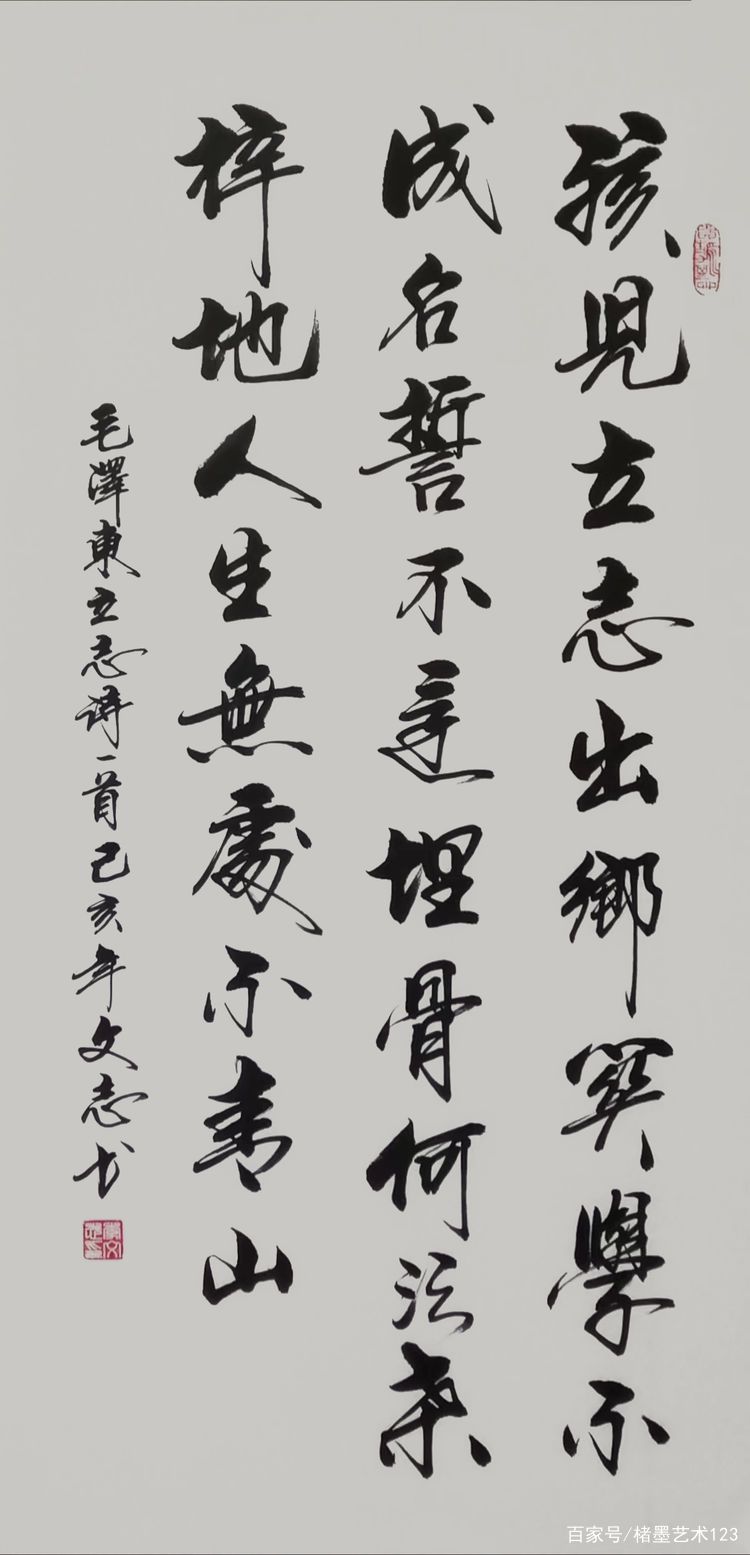 孩兒立志出鄉關學不
成名誓不還埋骨何須桑
梓地人生無處不青山
毛澤東立志詩一首己亥年文志书
百家号/楮墨艺术123